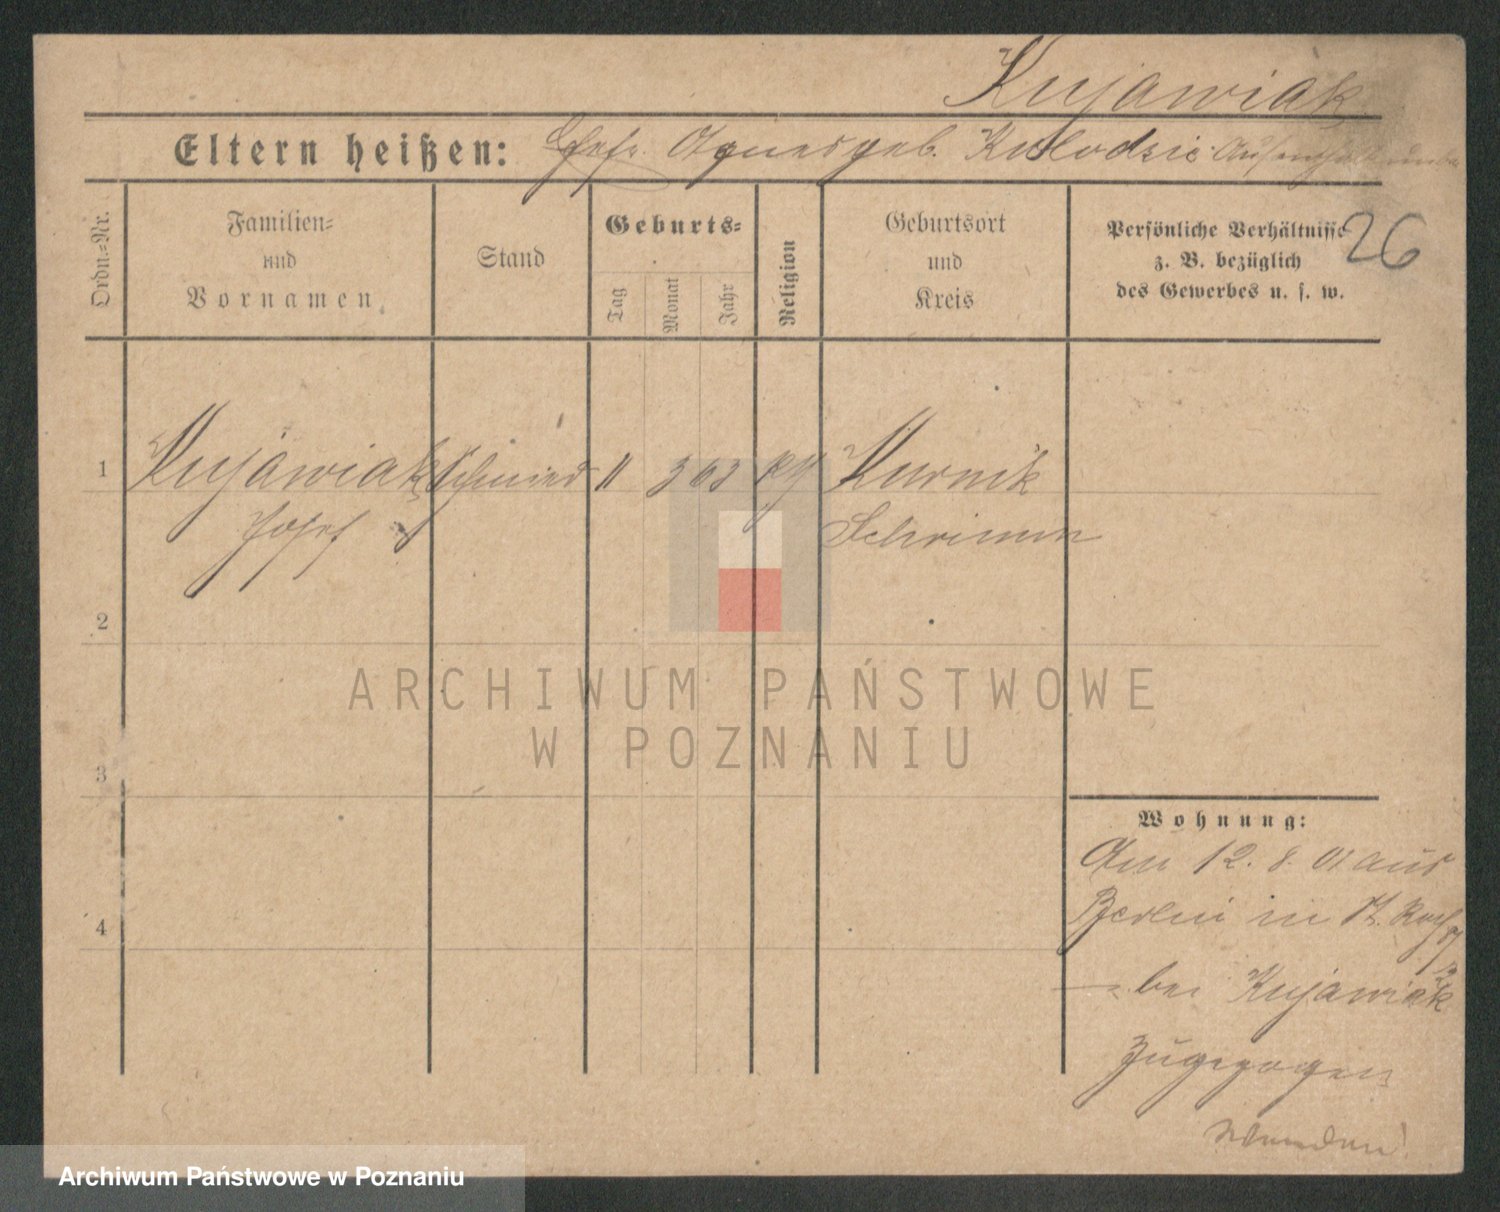 Kujawiak
Eltern heißen: Ehefr. Agnes geb. Kolodzie
26
Ordn.=Nr.
Familien=
und
Vornamen
Stand
Geburts=
Tag
Monat
Jahr
Religion
Geburtsort
und
Kreis
Persönliche Verhältnisse
z. B. bezüglich
des Gewerbes u. s. w.
1 Kujawiak Schmied 11 3 63 Kurnik
Josef Schrimm
2
3
4
Wohnung:
Am 12. 8. 01 aus
Berlin in St. Roch
bei Kujawiak
zugezogen
Wenden!
ARCHIWUM PAŃSTWOWE
W POZNANIU
Archiwum Państwowe w Poznaniu